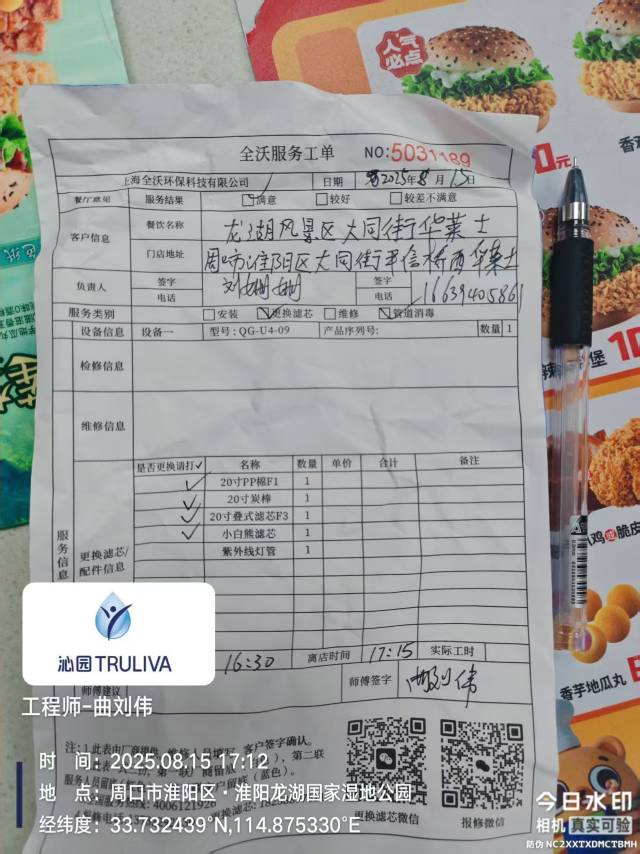 人气
必点
0元
全沃服务工单 NO:5031189
上海全沃环保科技有限公司 日期 2025年8月15日
餐厅意见 服务结果 满意 较好 较差不满意
客户信息 餐饮名称 龙湖风景区大同街华莱士
门店地址 周口市淮阳区大同街平信桥西华莱士
负责人 签字 刘姗姗 签字
电话 电话 16639405861
服务类别 安装 更换滤芯 维修 管道消毒
设备信息 设备一 型号:QG-U4-09 产品序列号: 数量 1
检修信息
维修信息
服务信息
更换滤芯/
配件信息
是否更换请打✓ 名称 数量 单价 合计 备注
✓ 20寸PP棉F1 1
✓ 20寸炭棒 1
✓ 20寸叠式滤芯F3 1
✓ 小白熊滤芯 1
紫外线灯管 1
16:30 离店时间 17:15 实际工时
师傅建议 师傅签字 曲刘伟
沁园TRULIVA
工程师-曲刘伟
时 间：2025.08.15 17:12
地 点：周口市淮阳区·淮阳龙湖国家湿地公园
经纬度：33.732439°N,114.875330°E
更换滤芯微信 报修微信
香芋地瓜丸
今日水印
相机 真实可验
防伪 NC2XXTXDMCTBMH